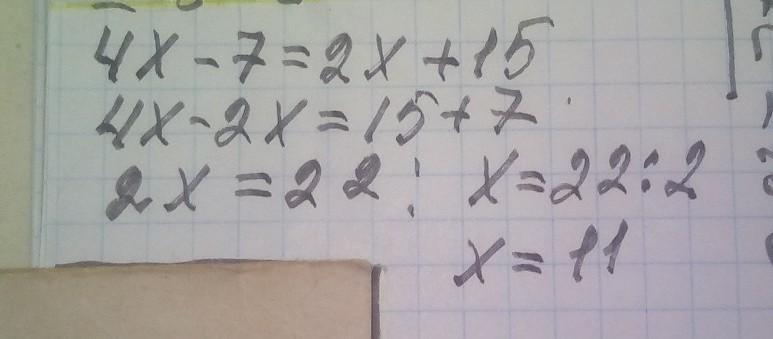 4x - 7 = 2x + 15
4x - 2x = 15 + 7
2x = 22; x = 22 : 2
x = 11